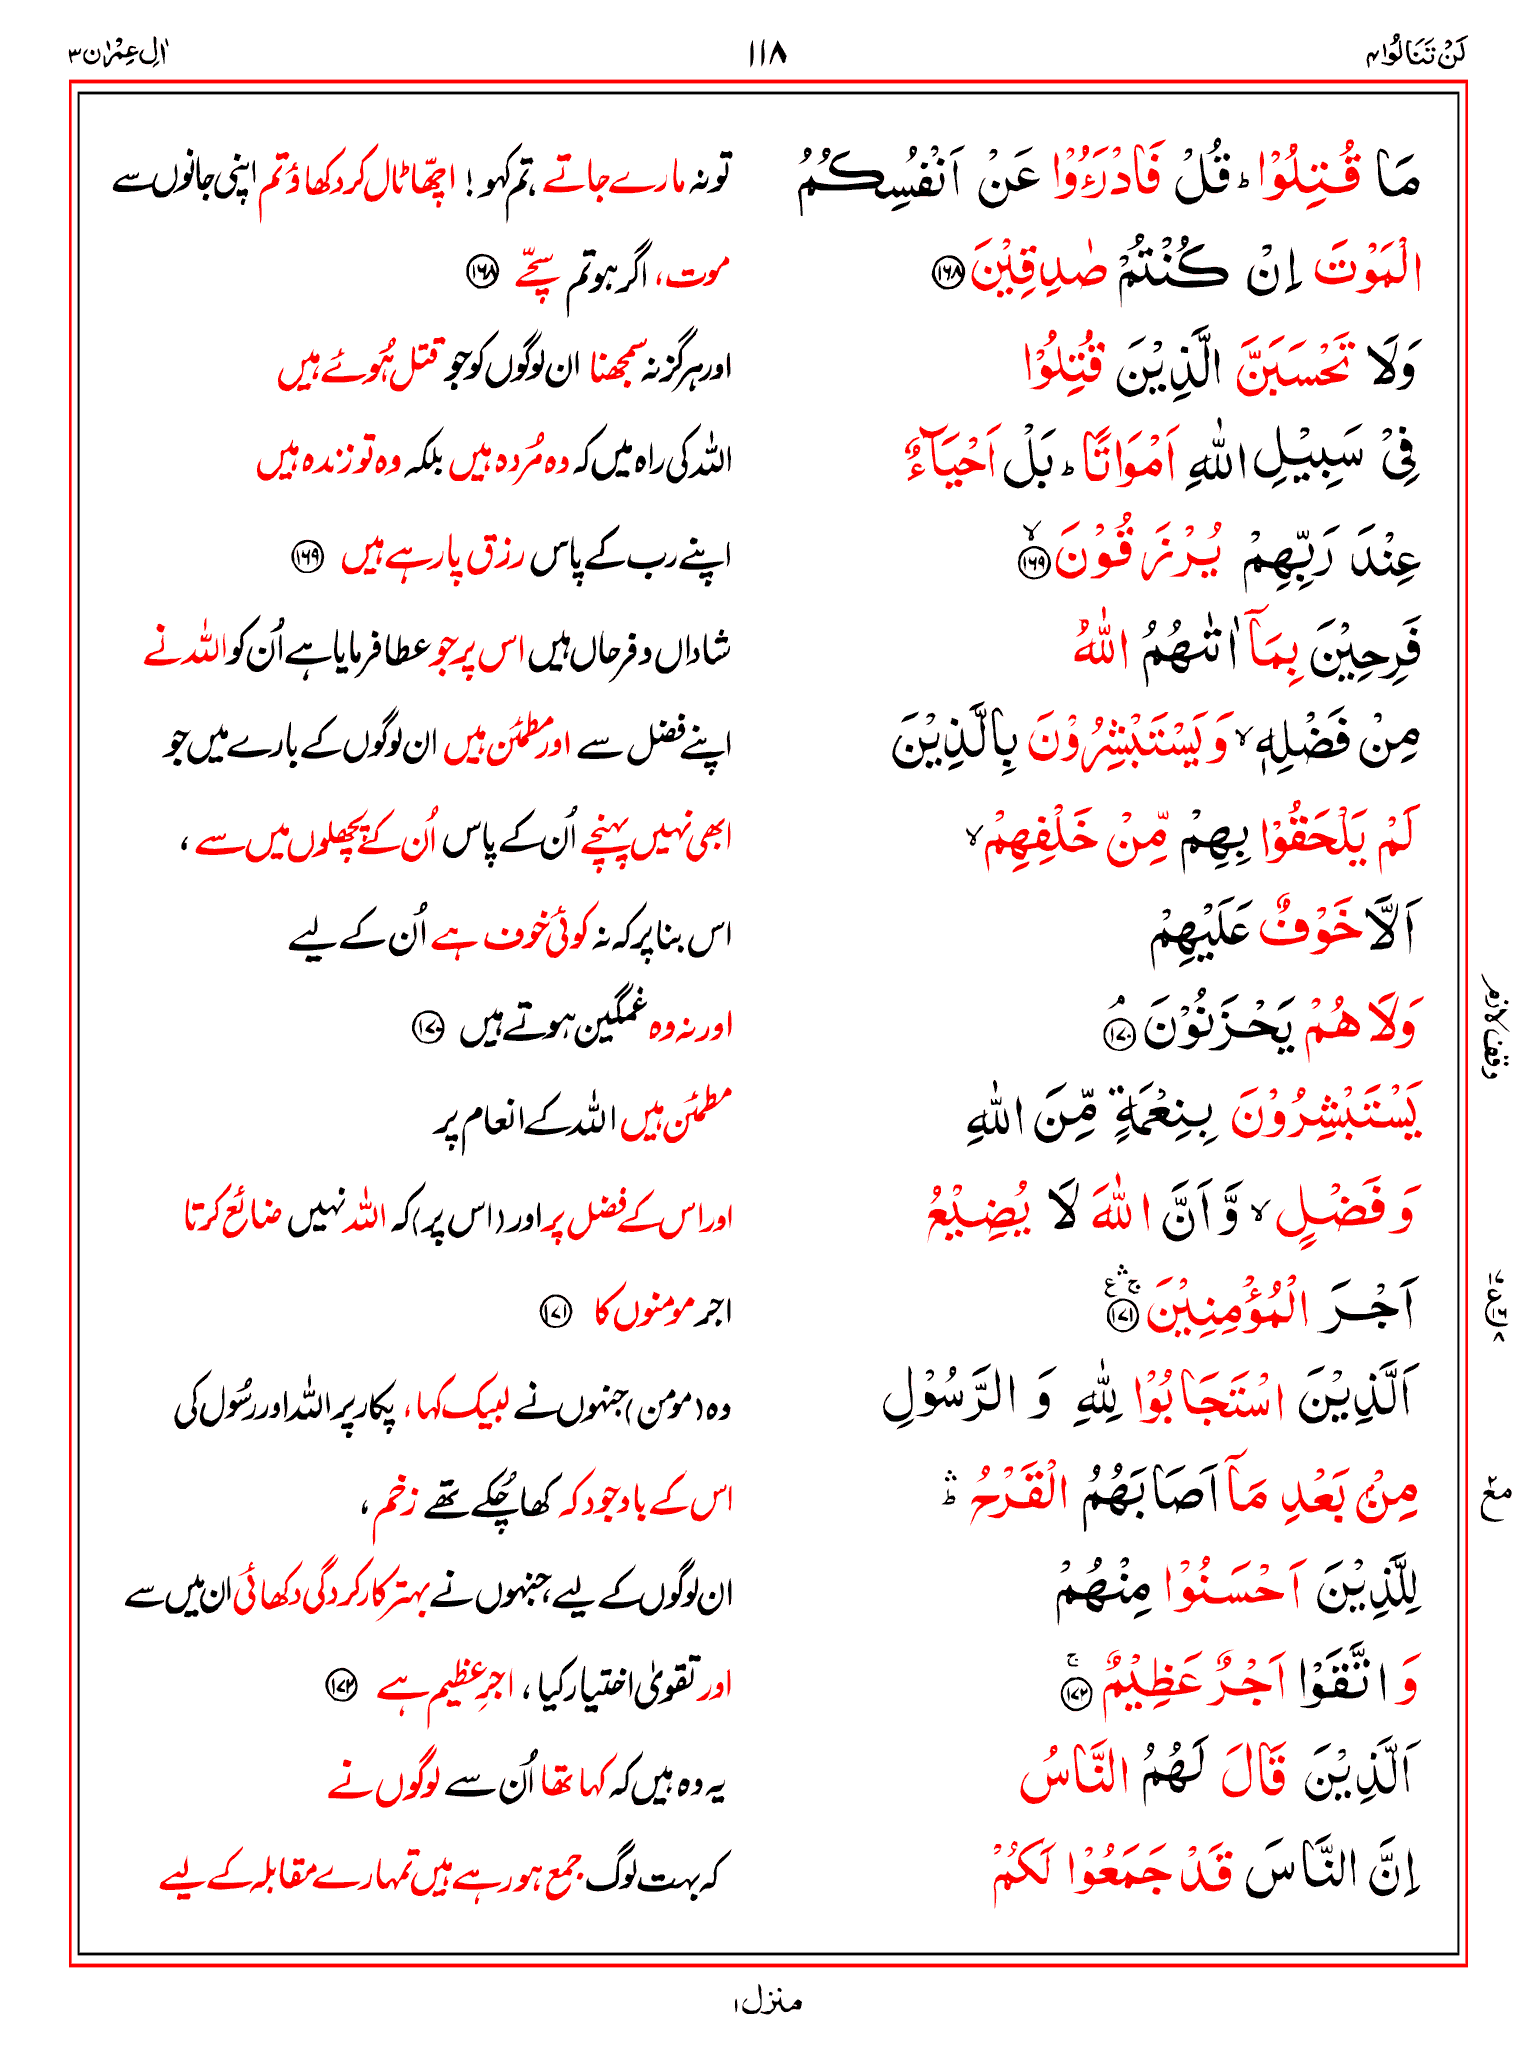 لَنْ تَنَالُوا۴ ۱۱۸ اٰلِ عِمْرٰن۳
مَا قُتِلُوْا ؕ قُلْ فَادْرَءُوْا عَنْ اَنْفُسِكُمُ تو نہ مارے جاتے ، تم کہو ! اچھا ٹال کر دکھاؤ تم اپنی جانوں سے
الْمَوْتَ اِنْ كُنْتُمْ صٰدِقِيْنَ ۝۱۶۸ موت، اگر ہو تم سچّے ۝۱۶۸
وَلَا تَحْسَبَنَّ الَّذِيْنَ قُتِلُوْا اور ہرگز نہ سمجھنا ان لوگوں کو جو قتل ہُوئے ہیں
فِيْ سَبِيْلِ اللّٰهِ اَمْوَاتًا ؕ بَلْ اَحْيَآءٌ اللہ کی راہ میں کہ وہ مُردہ ہیں بلکہ وہ تو زندہ ہیں
عِنْدَ رَبِّهِمْ يُرْزَقُوْنَ ۝۱۶۹ۙ اپنے رب کے پاس رزق پا رہے ہیں ۝۱۶۹
فَرِحِيْنَ بِمَآ اٰتٰىهُمُ اللّٰهُ شاداں و فرحاں ہیں اس پر جو عطا فرمایا ہے اُن کو اللہ نے
مِنْ فَضْلِهٖ ۙ وَيَسْتَبْشِرُوْنَ بِالَّذِيْنَ اپنے فضل سے اور مطمئن ہیں ان لوگوں کے بارے میں جو
لَمْ يَلْحَقُوْا بِهِمْ مِّنْ خَلْفِهِمْ ۙ ابھی نہیں پہنچے اُن کے پاس اُن کے پچھلوں میں سے ،
اَلَّا خَوْفٌ عَلَيْهِمْ اس بنا پر کہ نہ کوئی خوف ہے اُن کے لیے
وَلَا هُمْ يَحْزَنُوْنَ ۝۱۷۰ۘ اور نہ وہ غمگین ہوتے ہیں ۝۱۷۰
وقف لازم
يَسْتَبْشِرُوْنَ بِنِعْمَةٍ مِّنَ اللّٰهِ مطمئن ہیں اللہ کے انعام پر
وَفَضْلٍ ۙ وَّاَنَّ اللّٰهَ لَا يُضِيْعُ اور اس کے فضل پر اور (اس پر) کہ اللہ نہیں ضائع کرتا
اَجْرَ الْمُؤْمِنِيْنَ ۝۱۷۱ اجر مومنوں کا ۝۱۷۱
اَلَّذِيْنَ اسْتَجَابُوْا لِلّٰهِ وَ الرَّسُوْلِ وہ (مومن) جنہوں نے لبیک کہا، پکار پر اللہ اور رسُول کی
مِنْۢ بَعْدِ مَآ اَصَابَهُمُ الْقَرْحُ ؕ اس کے باوجود کہ کھا چُکے تھے زخم ،
لِلَّذِيْنَ اَحْسَنُوْا مِنْهُمْ ان لوگوں کے لیے ، جنہوں نے بہتر کارکردگی دکھائی ان میں سے
وَ اتَّقَوْا اَجْرٌ عَظِيْمٌ ۝۱۷۲ۚ اور تقویٰ اختیار کیا ، اجرِ عظیم ہے ۝۱۷۲
اَلَّذِيْنَ قَالَ لَهُمُ النَّاسُ یہ وہ ہیں کہ کہا تھا اُن سے لوگوں نے
اِنَّ النَّاسَ قَدْ جَمَعُوْا لَكُمْ کہ بہت لوگ جمع ہو رہے ہیں تمہارے مقابلہ کے لیے
منزل۱